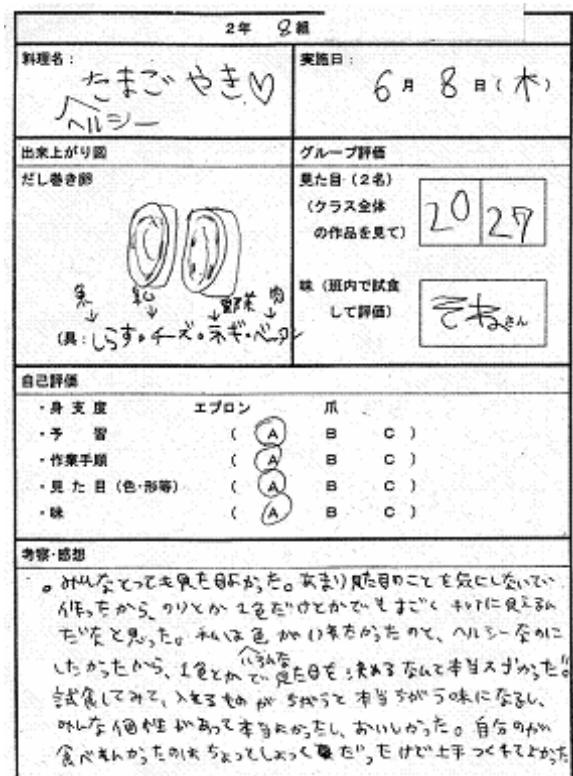 2年 8組
料理名:
たまごやき♡
ヘルシー
実施日:
6月 8日(木)
出来上がり図
だし巻き卵
魚 乳 野菜 肉
↓ ↓ ↓ ↓
(具:しらす。チーズ。ネギ。ベーコン
グループ評価
見た目(2名)
(クラス全体
の作品を見て)
20 27
味(班内で試食
して評価)
さん
自己評価
・身支度 エプロン 爪
・予習 ( A B C )
・作業手順 ( A B C )
・見た目(色・形等) ( A B C )
・味 ( A B C )
考察・感想
。みんなとっても見た目よかった。あまり見た目のことを気にしないで
作ったから、のりとか1色だけとかでもすごくキレイに見えるん
だなと思った。私は色が
のと、ヘルシーなのに
したかったから、1色とかで
いろんな
見た目を決めるなんて本当スゴかった。
試食してみて、入れるものがちがうと本当ちがう味になるし、
みんな個性があって本当よかったし、おいしかった。自分のが
食べ
のはちょっと
だったけど上手つくれてよかった